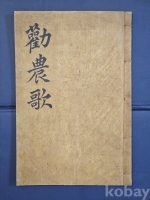 勸農歌
kobay